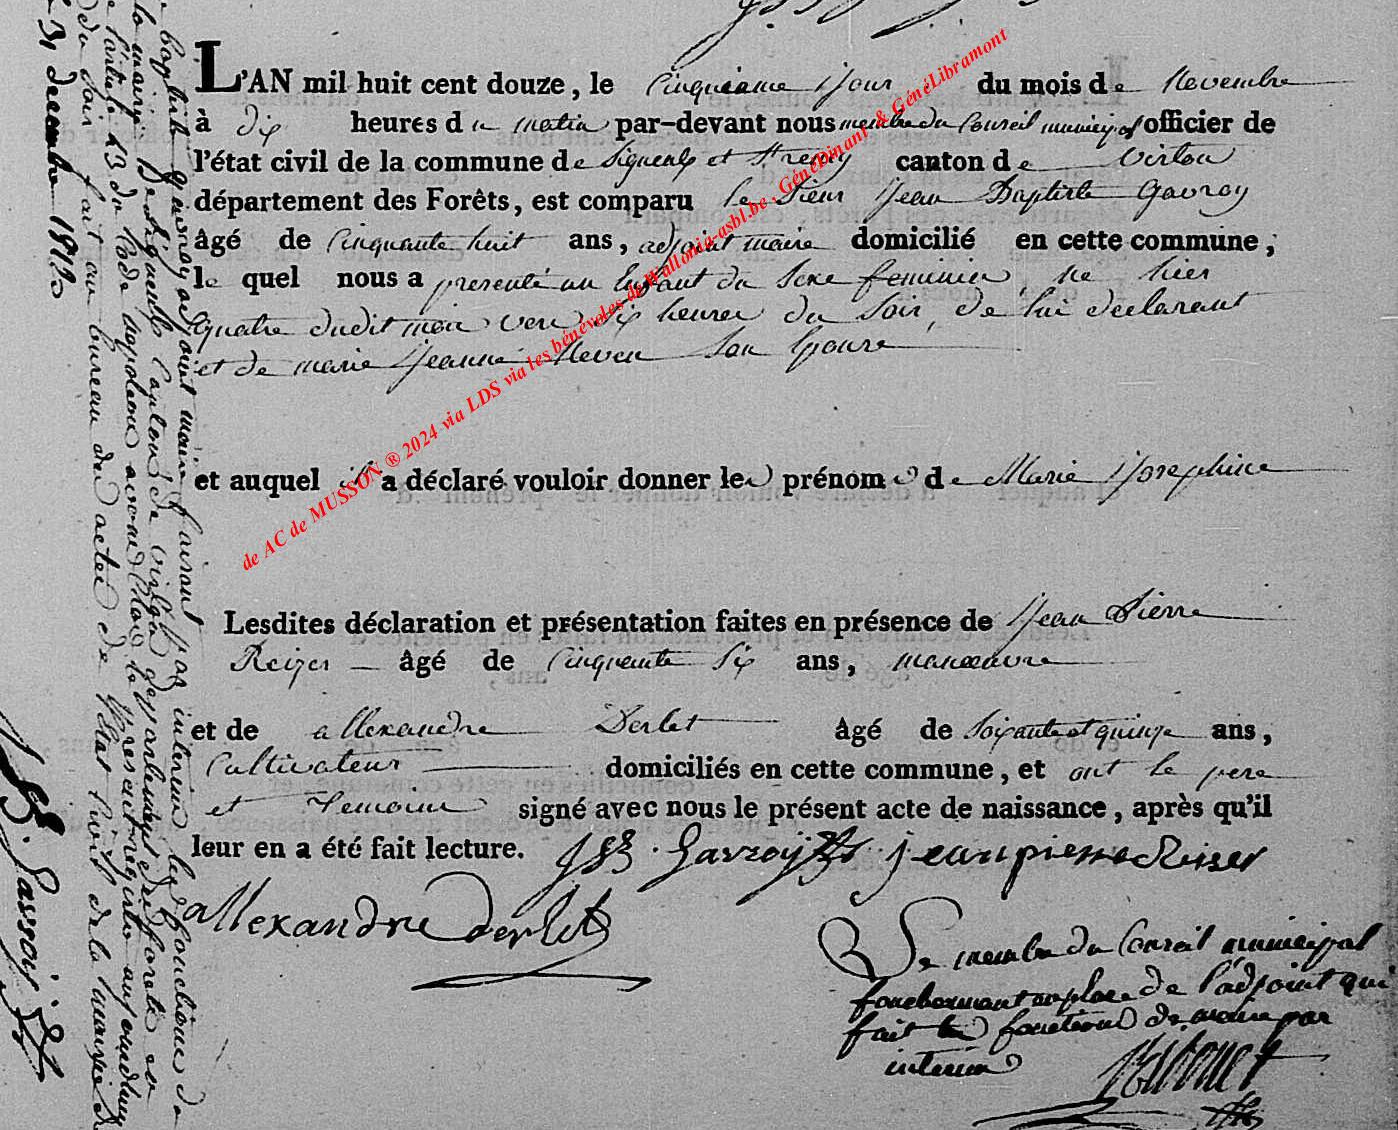 L'AN mil huit cent douze, le Cinquieme Jour du mois de Novembre
à dix heures du matin par-devant nous membre du Conseil municipal officier de
l'état civil de la commune de Signeulx et St remy canton de Virton
département des Forêts, est comparu le Sieur Jean Baptiste Gavroy
âgé de Cinquante huit ans, adjoint maire domicilié en cette commune,
le quel nous a presenté un Enfant du Sexe feminin, né hier
quatre dudit mois vers Six heures du Soir, de lui declarant
et de marie Jeanne Neveu Son Epouse
et auquel il a déclaré vouloir donner les prénoms de Marie Josephine
Lesdites déclaration et présentation faites en présence de Jean Pierre
Reizer âgé de Cinquante Six ans, manoeuvre
et de allexandre Derlet âgé de Soixante et quinze ans,
Cultivateur domiciliés en cette commune, et ont le pere
et Temoins signé avec nous le présent acte de naissance, après qu'il
leur en a été fait lecture. JB. Gavroy jean pierre Reiser
allexandre derlet
Le membre du Conseil municipal
en place de l'adjoint qui
fait les fonctions de maire par
interim
baptiste Gavroy adjoint maire faisant par interim les fonctions de
la mairie de Signeulx Canton de virton departement des forets en
l'article 43 du Code Napoleon avons Clos le present registre
du Soir fait au bureau des actes de l'Etat Civil de la mairie de
31 decembre 1812
JB. Gavroy
de AC de MUSSON ® 2024 via LDS via les bénévoles de Wallonia-asbl.be, GénéDinant & GénéLibramont